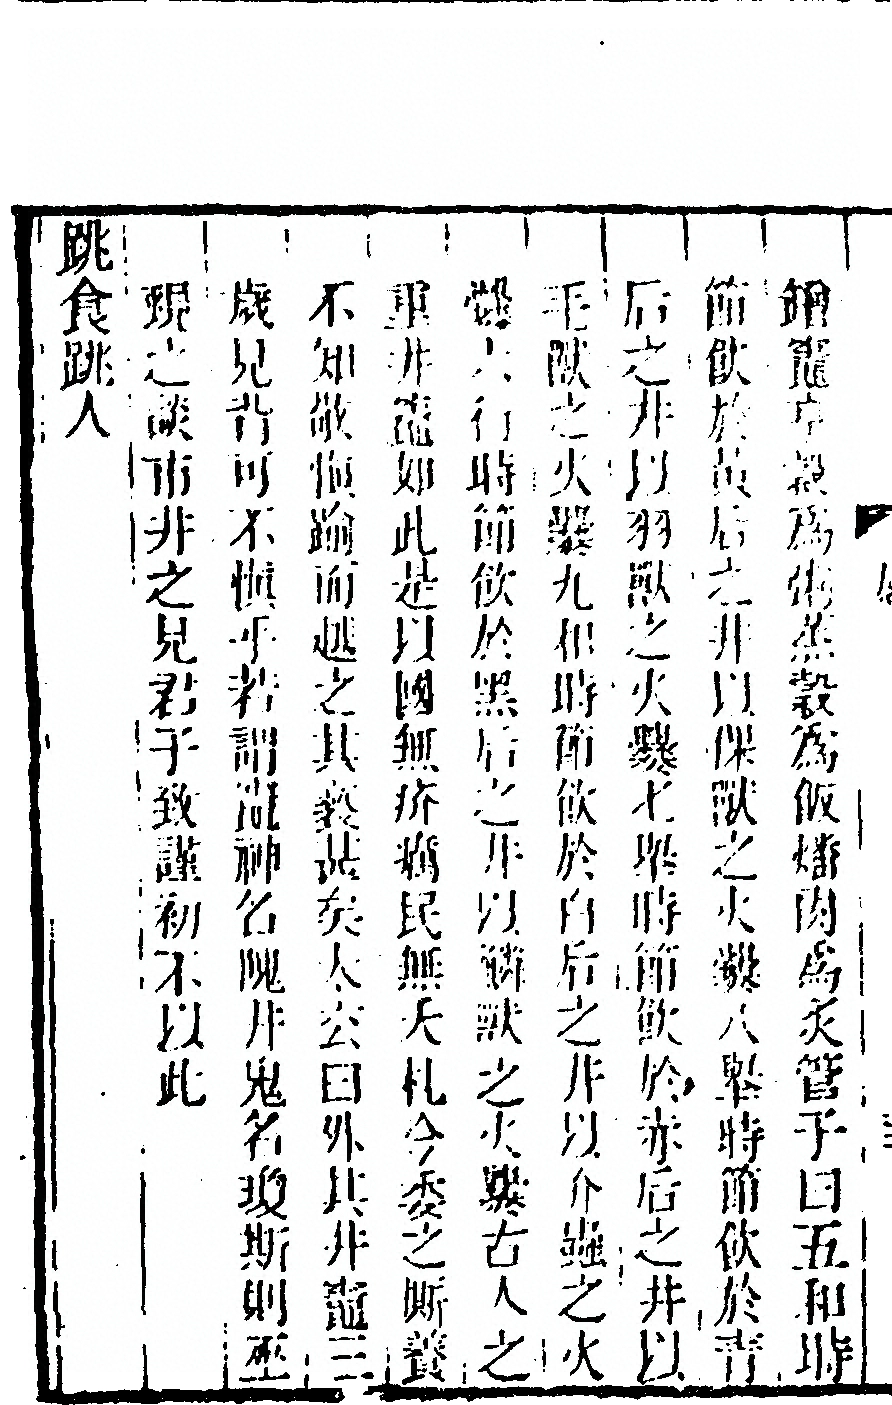 竈亨穀為粥蒸穀為飯燔肉為炙管子曰五和時
節飲於黃后之井以倮獸之火爨八舉時節飲於青
后之井以羽獸之火爨七舉時節飲於赤后之井以
毛獸之火爨九和時節飲於白后之井以介蟲之火
爨六行時節飲於黑后之井以鱗獸之火爨古人之
重井竈如此是以國無疥癘民無夭札今委之厮養
不知敬慎踰而越之其褻甚矣太公曰外其井竈三
歲見背可不慎乎若謂竈神名隗井鬼名瓊斯則巫
覡之談市井之見君子致謹初不以此
跳食跳人